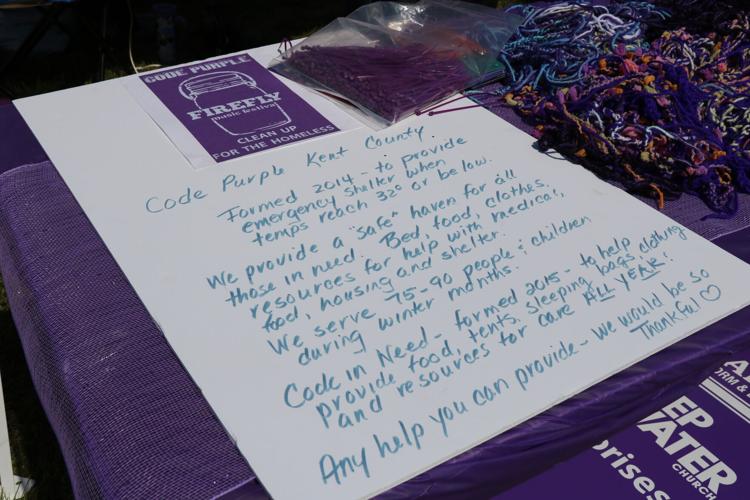 CODE PURPLE
FIREFLY
music festival
CLEAN UP
FOR THE HOMELESS
Code Purple Kent County
Formed 2014 - to provide
emergency shelter when
temps reach 32° or below.
We provide a "safe" haven for all
those in need. Bed, food, clothes,
resources for help with medical,
food, housing and shelter.
We serve 75-90 people & children
during winter months.
Code in Need - formed 2015 - to help
provide food, tents, sleeping bags, clothing
and resources for care ALL YEAR!
Any help you can provide - we would be so
Thankful ♡
CHURCH